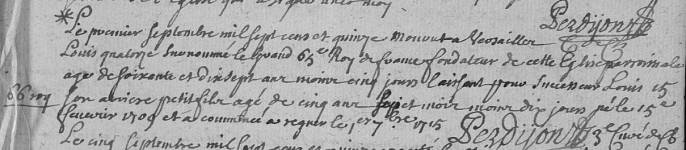 Perdijon
Le premier Septembre mil sept cens et quinze mourut a Versailles
Louis quatorze Surnommé le Grand 65e Roy de France fondateur de cette Eglise parroissiale
age de soixante et dix sept ans moins cinq jours laissant pour Successeur Louis 15
66 roy
son arriere petit fils agé de cinq ans sept mois moins dix jours né le 15e
feuvrier 1709 et a commencé a regner le 1er 7bre 1715 Perdijon 3e Curé de
Le cinq Septembre mil sept